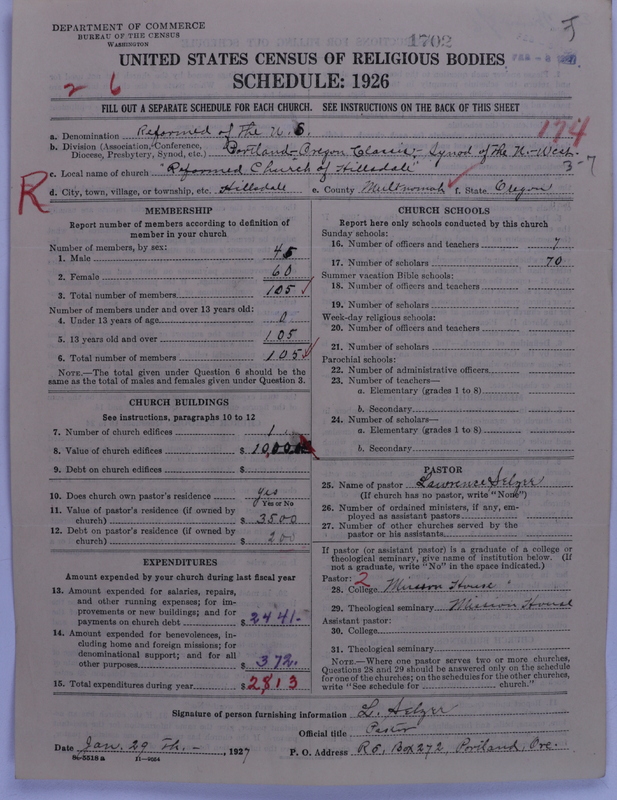 DEPARTMENT OF COMMERCE
BUREAU OF THE CENSUS
WASHINGTON
1702
UNITED STATES CENSUS OF RELIGIOUS BODIES
SCHEDULE: 1926
2 6
FILL OUT A SEPARATE SCHEDULE FOR EACH CHURCH. SEE INSTRUCTIONS ON THE BACK OF THIS SHEET
174
a. Denomination Reformed of the U.S.
b. Division (Association, Conference, Diocese, Presbytery, Synod, etc.) Portland-Oregon Classis - Synod of the N. West.
3-7
c. Local name of church "Reformed Church of Hillsdale"
R
d. City, town, village, or township, etc. Hillsdale e. County Multnomah f. State Oregon
MEMBERSHIP
Report number of members according to definition of
member in your church
Number of members, by sex:
1. Male 45
2. Female 60
3. Total number of members 105
Number of members under and over 13 years old:
4. Under 13 years of age 0
5. 13 years old and over 105
6. Total number of members 105
NOTE.—The total given under Question 6 should be
same as the total of males and females given under Question 3.
CHURCH BUILDINGS
See instructions, paragraphs 10 to 12
7. Number of church edifices 1
8. Value of church edifices $ 10,000
9. Debt on church edifices $
10. Does church own pastor's residence yes
Yes or No
11. Value of pastor's residence (if owned by
church) $ 3500
12. Debt on pastor's residence (if owned by
church) $ 200
EXPENDITURES
Amount expended by your church during last fiscal year
13. Amount expended for salaries, repairs,
and other running expenses; for im-
provements or new buildings; and for
payments on church debt $ 2441-
14. Amount expended for benevolences, in-
cluding home and foreign missions; for
denominational support; and for all
other purposes $ 372.
15. Total expenditures during year $ 2813
CHURCH SCHOOLS
Report here only schools conducted by this church
Sunday schools:
16. Number of officers and teachers 7
17. Number of scholars 70
Summer vacation Bible schools:
18. Number of officers and teachers
19. Number of scholars
Week-day religious schools:
20. Number of officers and teachers
21. Number of scholars
Parochial schools:
22. Number of administrative officers
23. Number of teachers—
a. Elementary (grades 1 to 8)
b. Secondary
24. Number of scholars—
a. Elementary (grades 1 to 8)
b. Secondary
PASTOR
25. Name of pastor Lawrence Selzer
(If church has no pastor, write "None")
26. Number of ordained ministers, if any, em-
ployed as assistant pastors
27. Number of other churches served by the
pastor or his assistants
If pastor (or assistant pastor) is a graduate of a college or
theological seminary, give name of institution below. (If
not a graduate, write "No" in the space indicated.)
Pastor: 2
28. College Mission House
29. Theological seminary Mission House
Assistant pastor:
30. College
31. Theological seminary
NOTE.—Where one pastor serves two or more churches,
Questions 28 and 29 should be answered only on the schedule
for one of the churches; on the schedules for the other churches,
write "See schedule for church."
Signature of person furnishing information L. Selzer
Official title Pastor
Date Jan. 29 th. - , 1927 P. O. Address R5, Box 272, Portland, Ore.
8a-5518 a 11-9054